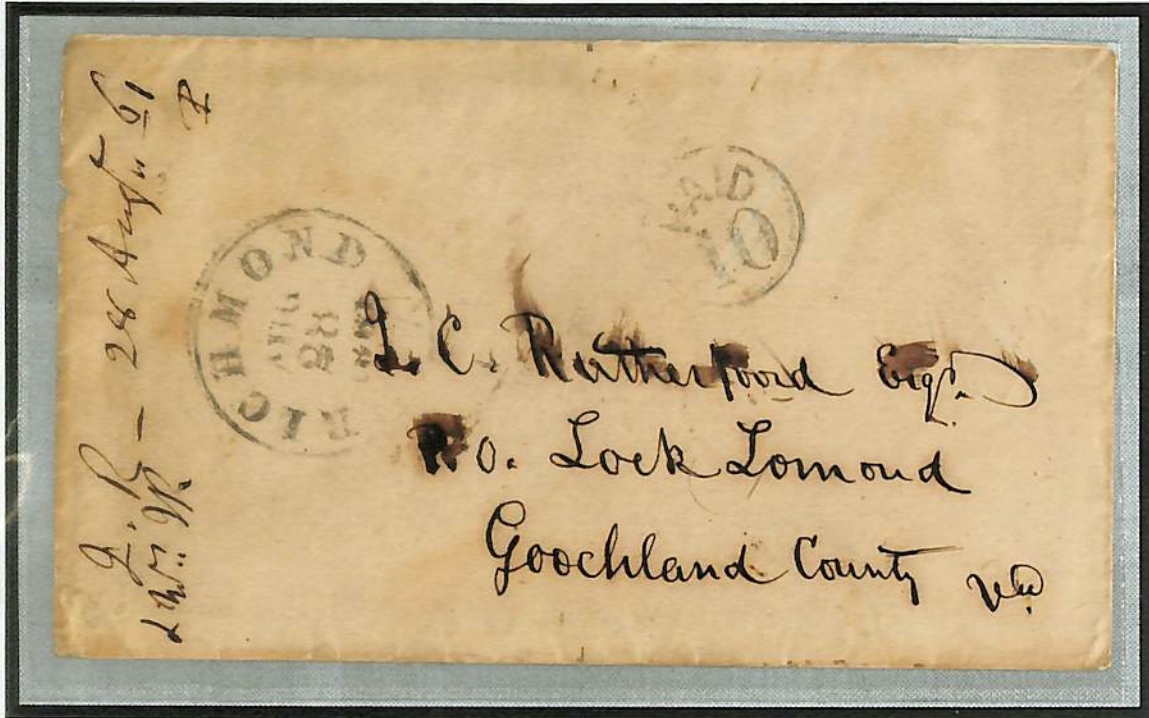 28 Augt. 61
RICHMOND
AUG
28
PAID
10
L. C. Rutherfoord Esqr.
P.O. Lock Lomond
Goochland County Va